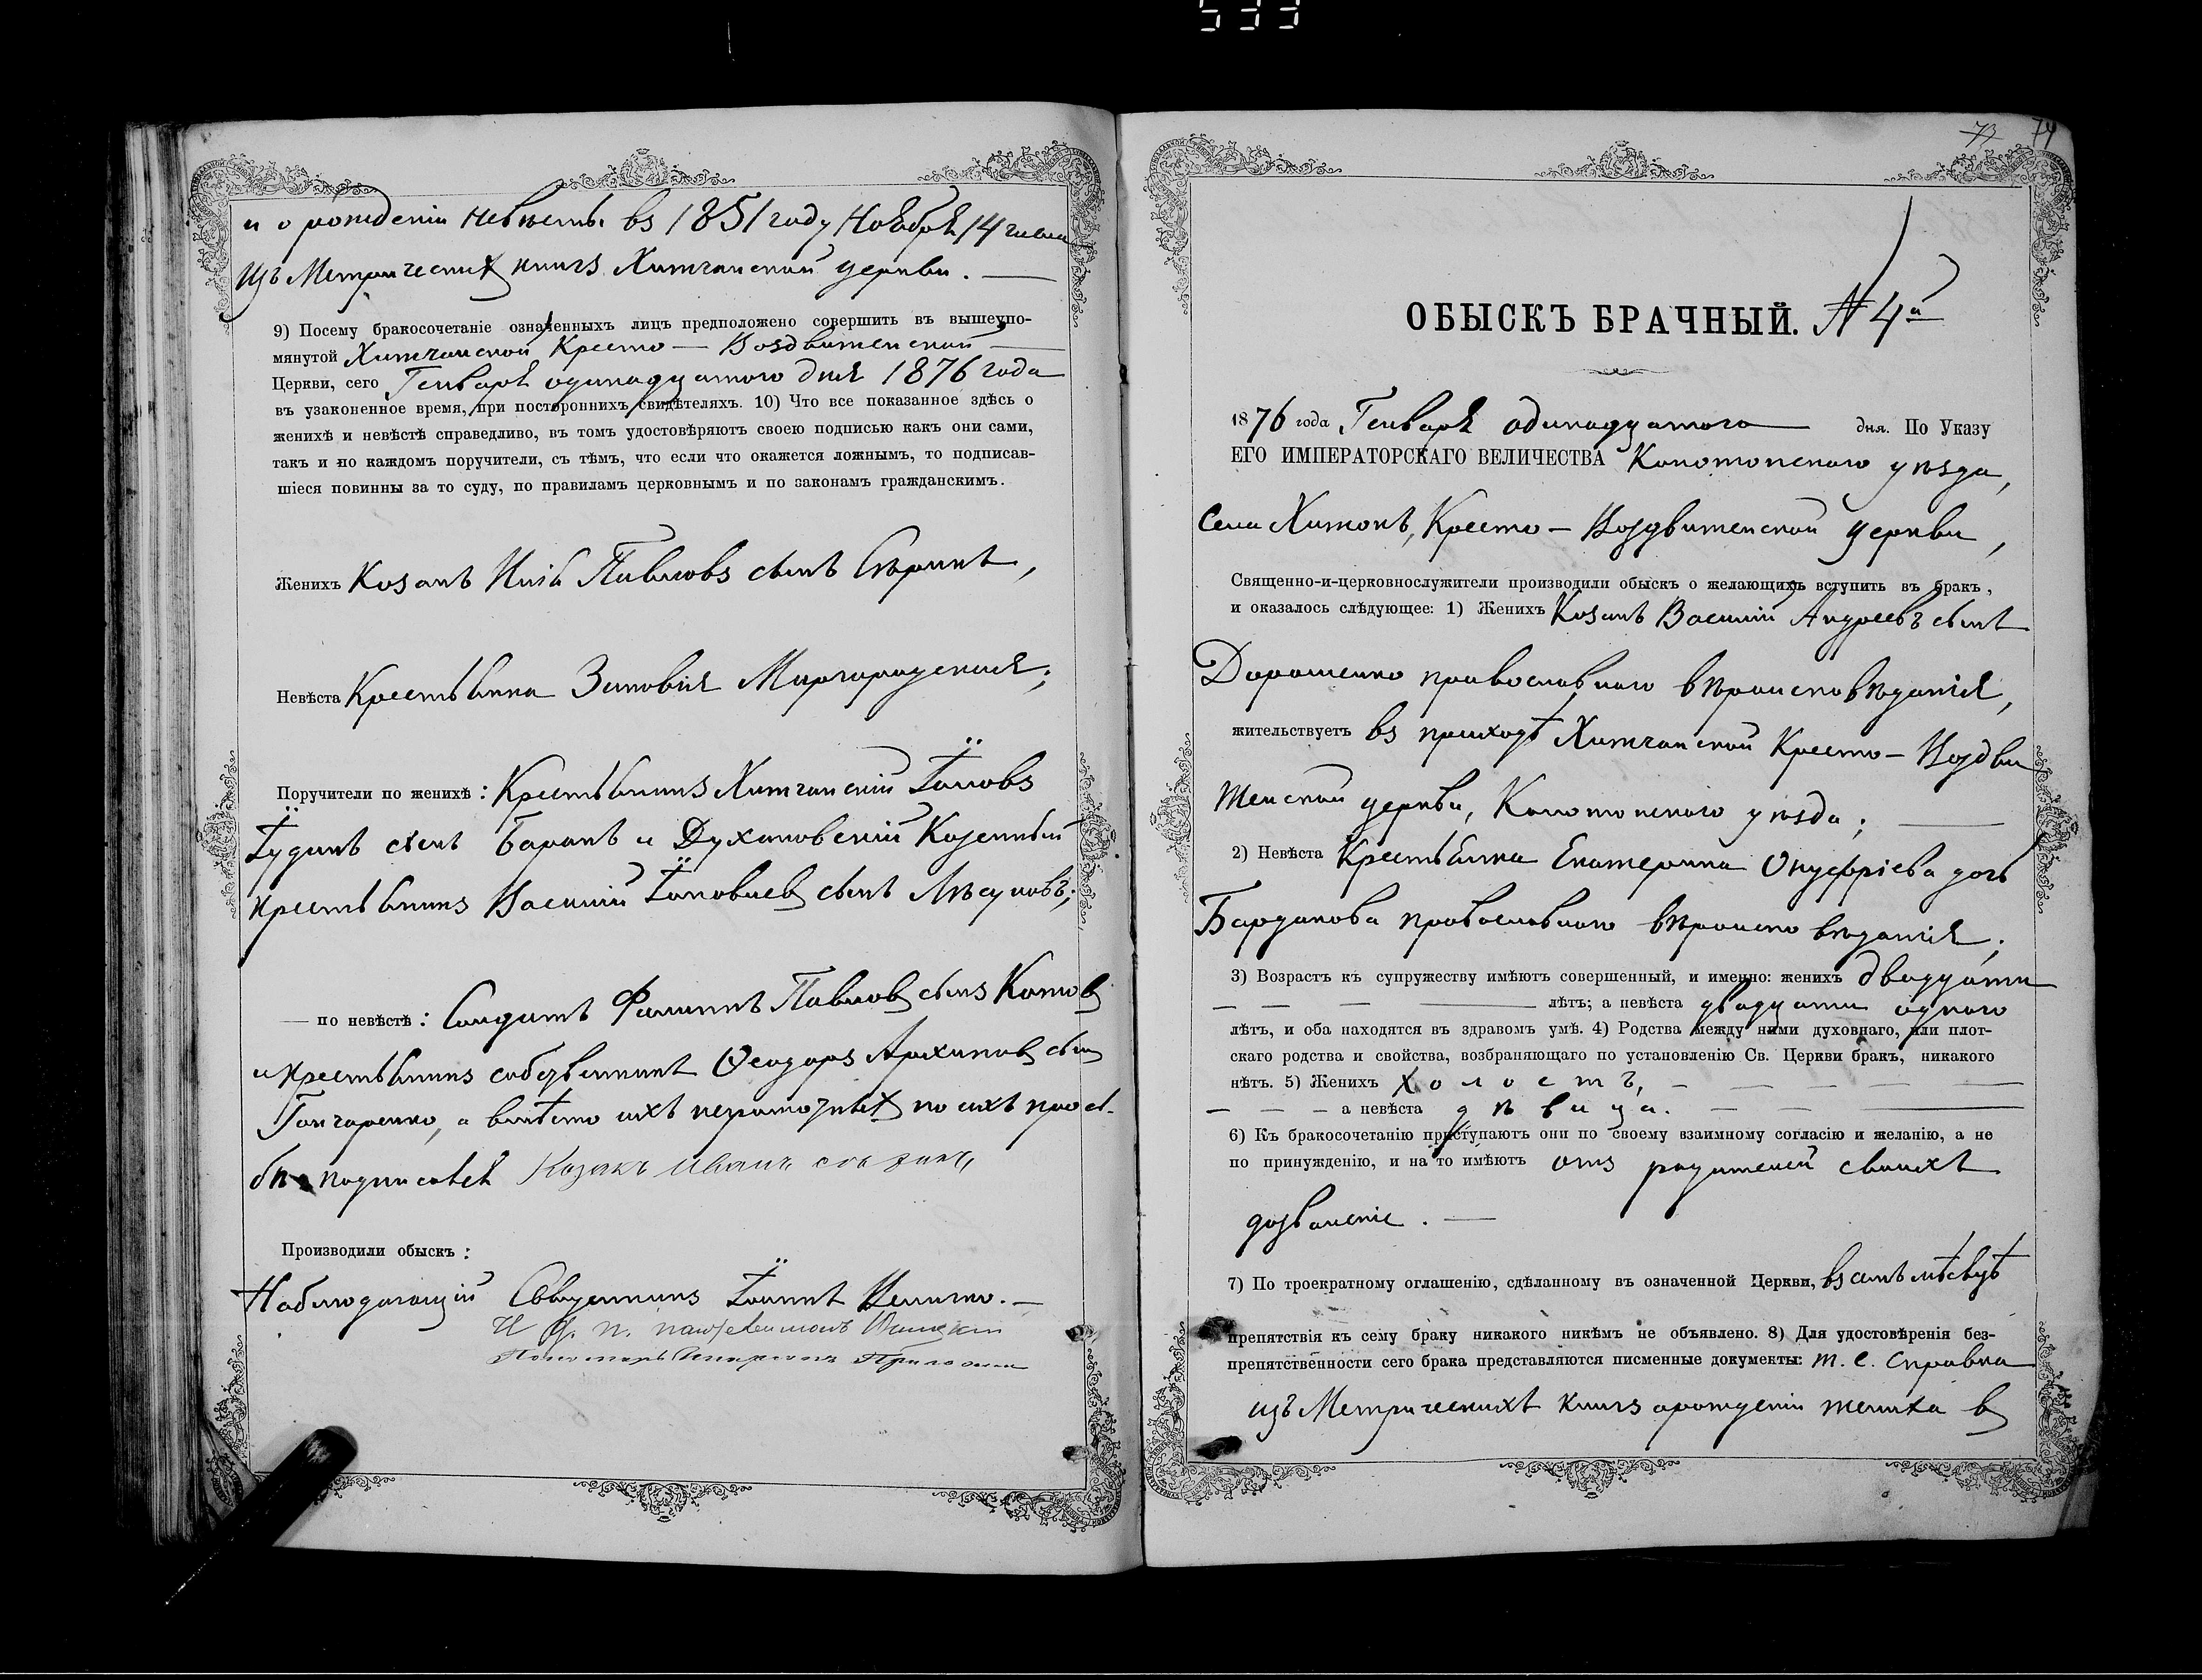 533
и о рожденіи невѣсты въ 1851 году Ноября 14 числа
Изъ Метрическихъ книгъ Хижчанской церкви. —
9) Посему бракосочетаніе означенныхъ лицъ предположено совершить въ вышеупо-
мянутой Хижчанской Кресто — Воздвиженской —
Церкви, сего Генваря одинадцатого дня 1876 года
въ узаконенное время, при постороннихъ свидѣтеляхъ. 10) Что все показанное здѣсь о
женихѣ и невѣстѣ справедливо, въ томъ удостовѣряютъ своею подписью какъ они сами,
такъ и по каждомъ поручители, съ тѣмъ, что если что окажется ложнымъ, то подписав-
шіеся повинны за то суду, по правиламъ церковнымъ и по законамъ гражданскимъ.
Женихъ Козакъ Павловъ сынъ
Невѣста Крестьянка Зиновія Миргородская;
Поручители по женихѣ: Крестьянинъ Хижчанскій Іаковъ
Іудинъ сынъ Баранъ и Духановскій Казенный
крестьянинъ Василій Іаковлевъ сынъ Лѣсуновъ;
— по невѣстѣ: Солдатъ Филиппъ Павловъ сынъ
и крестьянинъ собственникъ Ѳеодоръ Архиповъ сынъ
Гончаренко, а вмѣсто ихъ неграмотныхъ по ихъ прось-
бѣ подписался Казакъ Иванъ
Производили обыскъ:
Наблюдающій Священникъ Іоаннъ Величко. —
И. д. п.
Пономарь
73 74
ОБЫСКЪ БРАЧНЫЙ. № 4й
1876 года Генваря одинадцатого — дня. По Указу
ЕГО ИМПЕРАТОРСКАГО ВЕЛИЧЕСТВА Конотопского уѣзда,
Села Хижокъ, Кресто — Воздвиженской церкви,
Священно-и-церковнослужители производили обыскъ о желающихъ вступить въ бракъ,
и оказалось слѣдующее: 1) Женихъ Козакъ Василій Андреевъ сынъ
Дорошенко православного вѣроисповѣданія,
жительствуетъ въ приходѣ Хижчанской Кресто — Воздви
женской церкви, Конотопского уѣзда; —
2) Невѣста Крестьянка Екатерина Онуфріева дочь
Бардакова православного вѣроисповѣданія;
3) Возрастъ къ супружеству имѣютъ совершенный, и именно: женихъ двадцати
— — — — лѣтъ; а невѣста двадцати одного
лѣтъ, и оба находятся въ здравомъ умѣ. 4) Родства между ними духовнаго, или плот-
скаго родства и свойства, возбраняющаго по установленію Св. Церкви бракъ, никакого
нѣтъ. 5) Женихъ холостъ, — — — —
— — — а невѣста дѣвица. — — —
6) Къ бракосочетанію приступаютъ они по своему взаимному согласію и желанію, а не
по принужденію, и на то имѣютъ отъ родителей своихъ
дозволеніе. —
7) По троекратному оглашенію, сдѣланному въ означенной Церкви,
препятствія къ сему браку никакого никѣмъ не объявлено. 8) Для удостовѣренія без-
препятственности сего брака представляются писменные документы: т. е. справка
изъ Метрическихъ книгъ орожденіи жениха въ